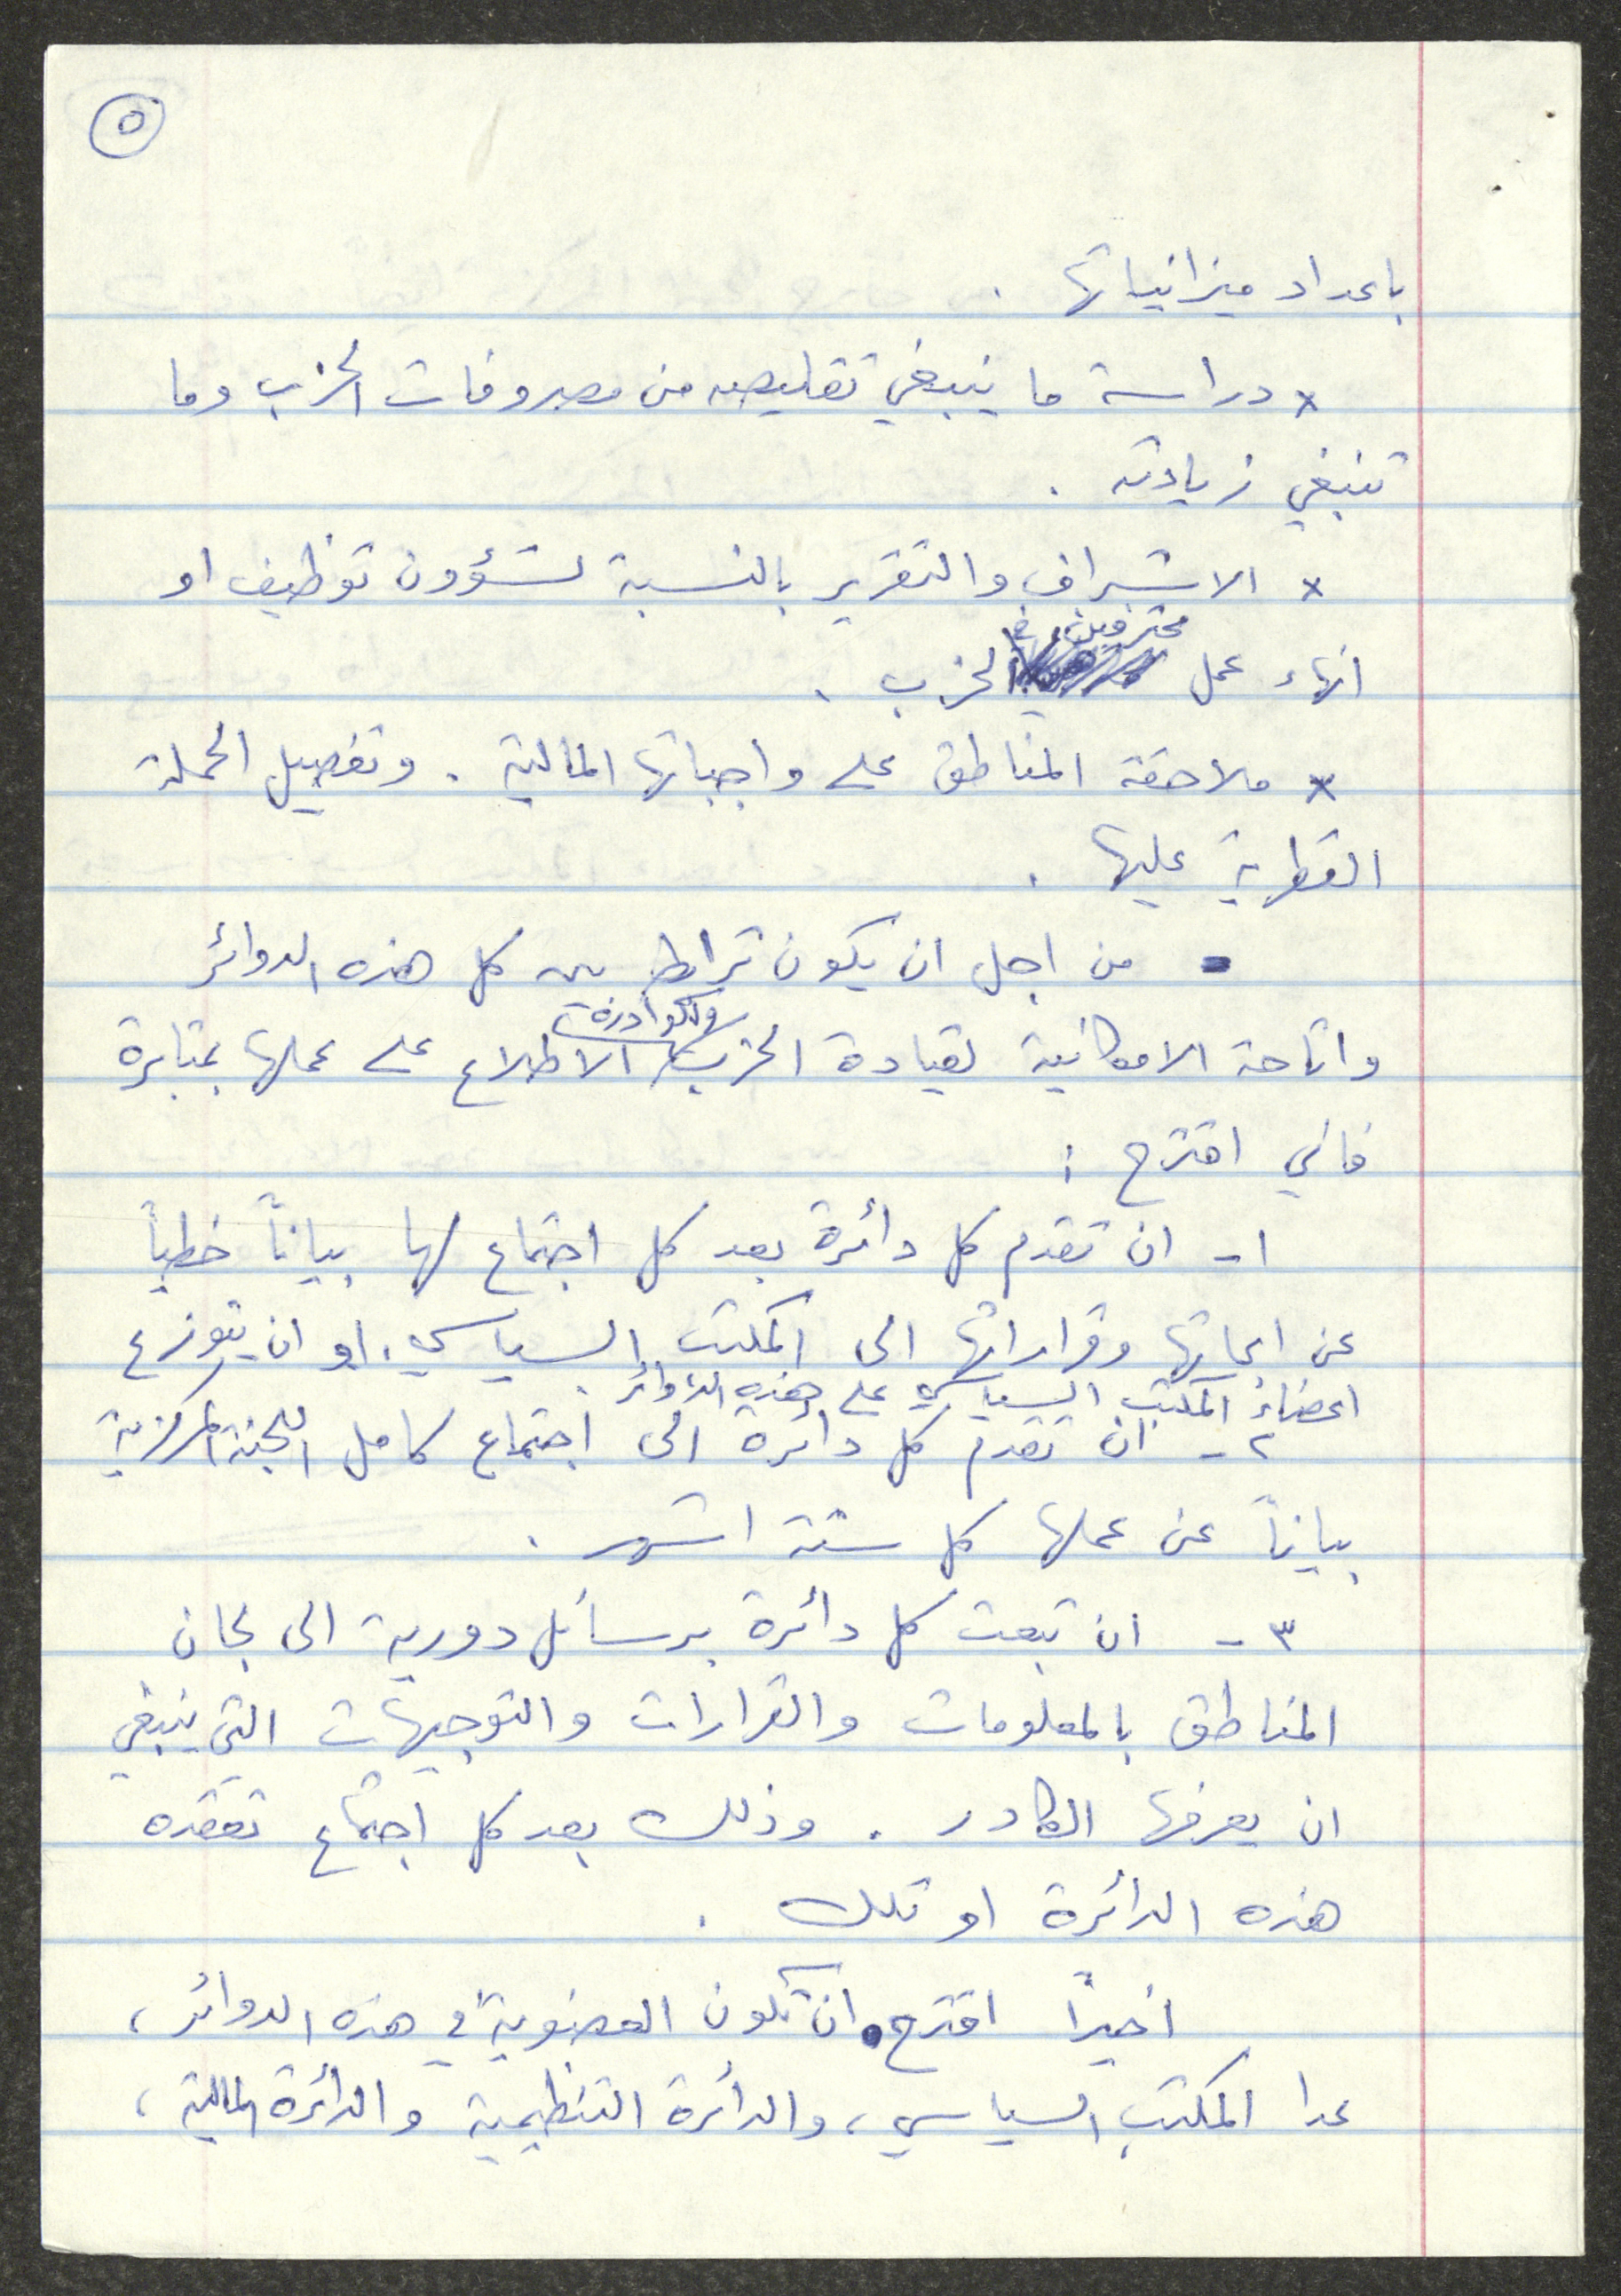 ٥
باعداد ميزانياتها .
× دراسة ما ينبغي تقليصه من مصروفات الحزب وما
تنبغي زيادته .
× الاشراف والتقرير بالنسبة لشؤون توظيف او
انهاء عمل محترفين في الحزب .
× ملاحقة المناطق على واجباتها المالية . وتفصيل الحملة
القطرية عليها .
• من اجل ان يكون ترابط بين كل هذه الدوائر
واتاحة الامكانية لقيادة الحزب ولكوادره الاطلاع على عملها بمثابرة
فاني اقترح :
١- ان تقدم كل دائرة بعد كل اجتماع لها بياناً خطياً
عن ابحاثها وقراراتها الى المكتب السياسي . او ان يتوزع
اعضاء المكتب السياسي على هذه الدوائر .
٢- ان تقدم كل دائرة الى اجتماع كامل اللجنة المركزية
بياناً عن عملها كل ستة اشهر .
٣- ان تبعث كل دائرة برسائل دورية الى لجان
المناطق بالمعلومات والقرارات والتوجيهات التي ينبغي
ان يعرفها الكادر . وذلك بعد كل اجتماع تعقده
هذه الدائرة او تلك .
اخيراً اقترح ان تكون العضوية في هذه الدوائر ،
عدا المكتب السياسي ، والدائرة التنظيمية والدائرة المالية ،